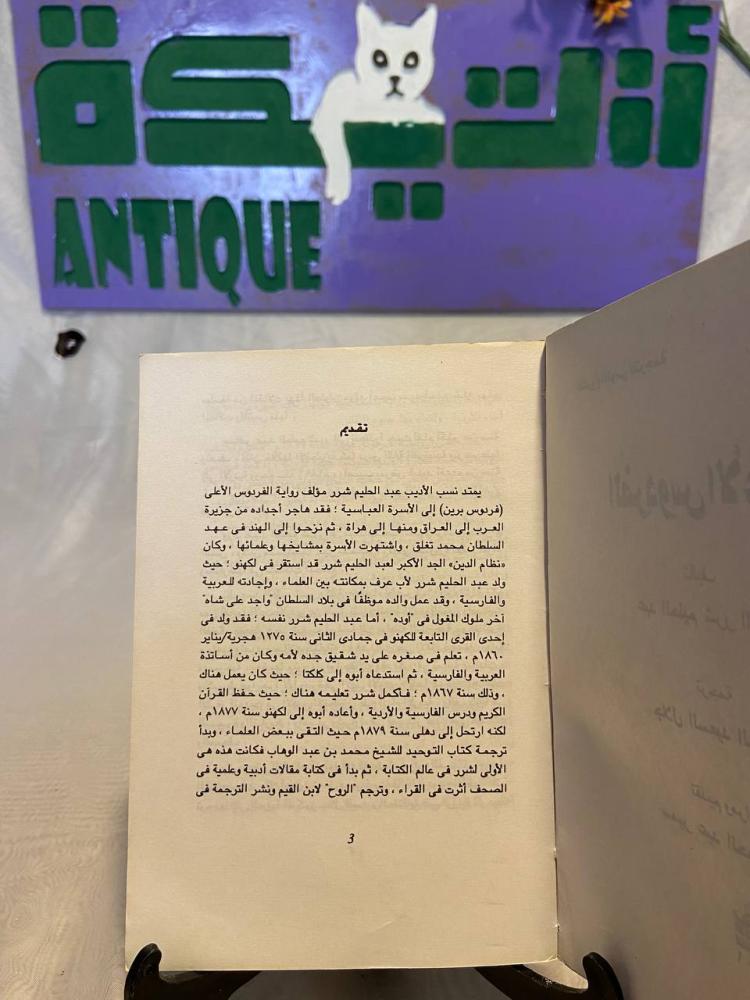 أنتيكة
ANTIQUE
تقديم
يمتد نسب الأديب عبد الحليم شرر مؤلف رواية الفردوس الأعلى
(فردوس برين) إلى الأسرة العباسية ؛ فقد هاجر أجداده من جزيرة
العرب إلى العراق ومنها إلى هراة ، ثم نزحوا إلى الهند فى عهد
السلطان محمد تغلق ، واشتهرت الأسرة بمشايخها وعلمائها ، وكان
«نظام الدين» الجد الأكبر لعبد الحليم شرر قد استقر فى لكهنو ؛ حيث
ولد عبد الحليم شرر لأب عرف بمكانته بين العلماء ، وإجادته للعربية
والفارسية ، وقد عمل والده موظفًا فى بلاد السلطان "واجد على شاه"
آخر ملوك المغول فى "أوده" ، أما عبد الحليم شرر نفسه ؛ فقد ولد فى
إحدى القرى التابعة للكهنو فى جمادى الثانى سنة ١٢٧٥ هجرية/يناير
١٨٦٠م ، تعلم فى صغره على يد شقيق جده لأمه وكان من أساتذة
العربية والفارسية ، ثم استدعاه أبوه إلى كلكتا ؛ حيث كان يعمل هناك
، وذلك سنة ١٨٦٧م ؛ فأكمل شرر تعليمه هناك ؛ حيث حفظ القرآن
الكريم ودرس الفارسية والأردية ، وأعاده أبوه إلى لكهنو سنة ١٨٧٧م ،
لكنه ارتحل إلى دهلى سنة ١٨٧٩م حيث التقى ببعض العلماء ، وبدأ
ترجمة كتاب التوحيد للشيخ محمد بن عبد الوهاب فكانت هذه هى
الأولى لشرر فى عالم الكتابة ، ثم بدأ فى كتابة مقالات أدبية وعلمية فى
الصحف أثرت فى القراء ، وترجم "الروح" لابن القيم ونشر الترجمة فى
3